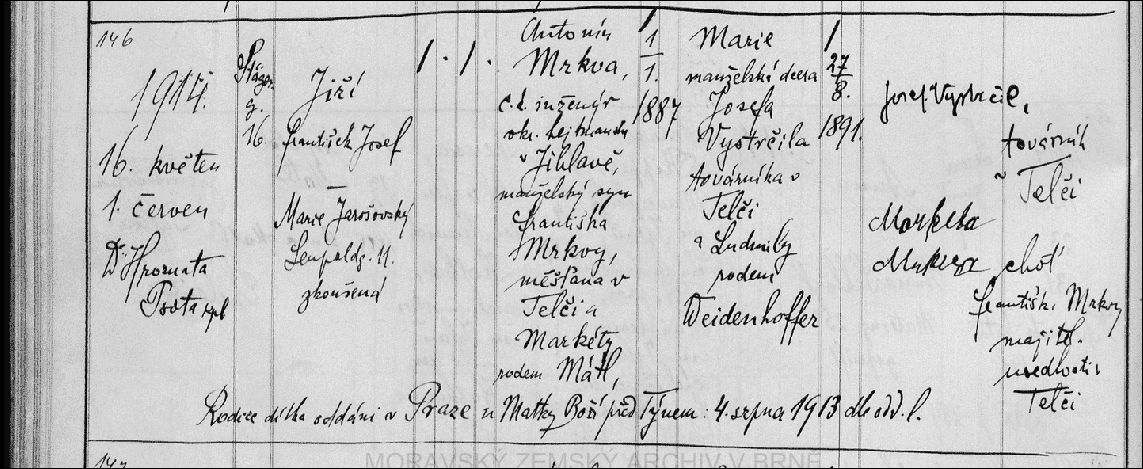 146
1914.
16. květen
1. červen
Dr Hroznata
g.
16.
Jiří
František Josef
—
Marie Jarošovský
Leopoldg. 11.
zkoušená
1. 1.
Antonín
Mrkva,
c.k. inženýr
okr. hejtmanství
v Jihlavě,
manželský syn
Františka
Mrkvy,
měšťana v
Telči a
Markéty
rodem Mátl,
1
1.
1887
Marie
manželská dcera
Josefa
Vystrčila
továrníka v
Telči
a Ludmily
rodem
Weidenhoffer
27
8.
1891.
Josef Vystrčil,
továrník
v Telči
Markéta
Mrkva choť
Františka Mrkvy
majitel.
usedlosti v
Telči
Rodiče dítka oddáni v Praze u Matky Boží před Týnem: 4. srpna 1913 dle odd. l.
147
MORAVSKÝ ZEMSKÝ ARCHIV V BRNĚ